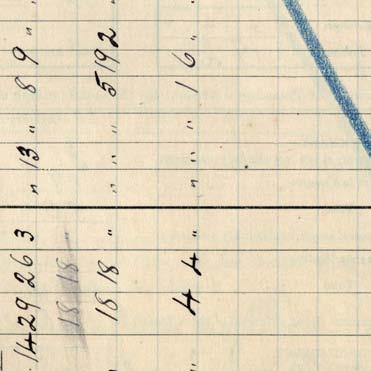 1429 26 3 " 13 " 8 9 "
18 18 "
" 18 18 " " " " 5 19 2 "
" 4 4 " " " " 1 6 "